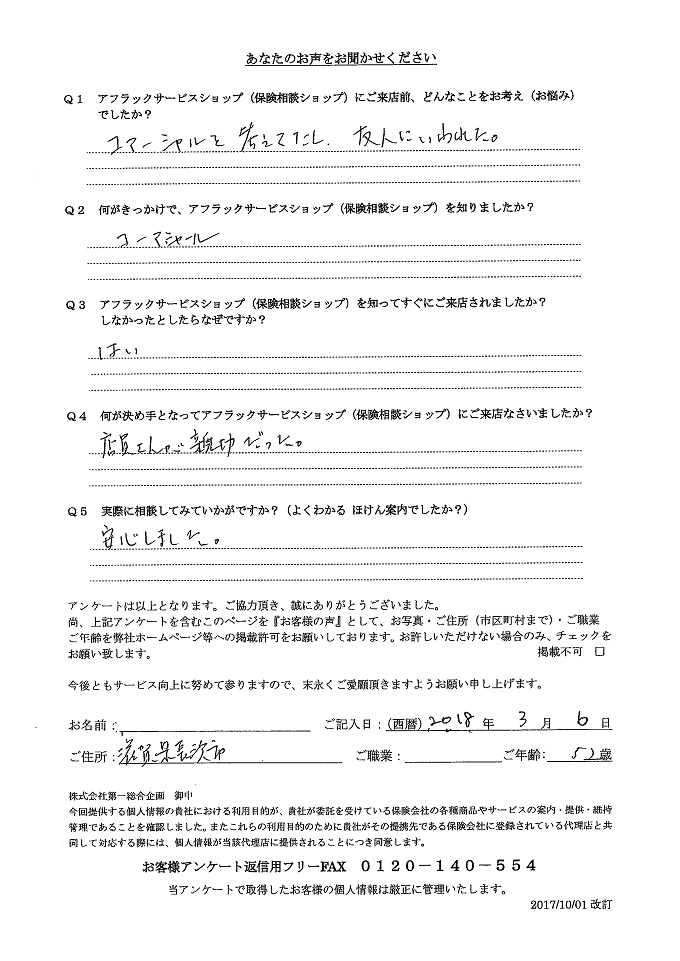 あなたのお声をお聞かせください
Q1 アフラックサービスショップ（保険相談ショップ）にご来店前、どんなことをお考え（お悩み）
でしたか？
コマーシャルを考えてたし、友人にいわれた。
Q2 何がきっかけで、アフラックサービスショップ（保険相談ショップ）を知りましたか？
コーマシャール
Q3 アフラックサービスショップ（保険相談ショップ）を知ってすぐにご来店されましたか？
しなかったとしたらなぜですか？
はい
Q4 何が決め手となってアフラックサービスショップ（保険相談ショップ）にご来店なさいましたか？
店員さんが親切だった。
Q5 実際に相談してみていかがですか？（よくわかる ほけん案内でしたか？）
安心しました。
アンケートは以上となります。ご協力頂き、誠にありがとうございました。
尚、上記アンケートを含むこのページを『お客様の声』として、お写真・ご住所（市区町村まで）・ご職業
ご年齢を弊社ホームページ等への掲載許可をお願いしております。お許しいただけない場合のみ、チェックを
お願い致します。 掲載不可 □
今後ともサービス向上に努めて参りますので、末永くご愛願頂きますようお願い申し上げます。
お名前： ご記入日：（西暦）2018 年 3 月 6 日
ご住所：滋賀県長浜市 ご職業： ご年齢： 52歳
株式会社第一総合企画 御中
今回提供する個人情報の貴社における利用目的が、貴社が委託を受けている保険会社の各種商品やサービスの案内・提供・維持
管理であることを確認しました。またこれらの利用目的のために貴社がその提携先である保険会社に登録されている代理店と共
同して対応する際には、個人情報が当該代理店に提供されることにつき同意します。
お客様アンケート返信用フリーFAX 0120－140－554
当アンケートで取得したお客様の個人情報は厳正に管理いたします。
2017/10/01 改訂